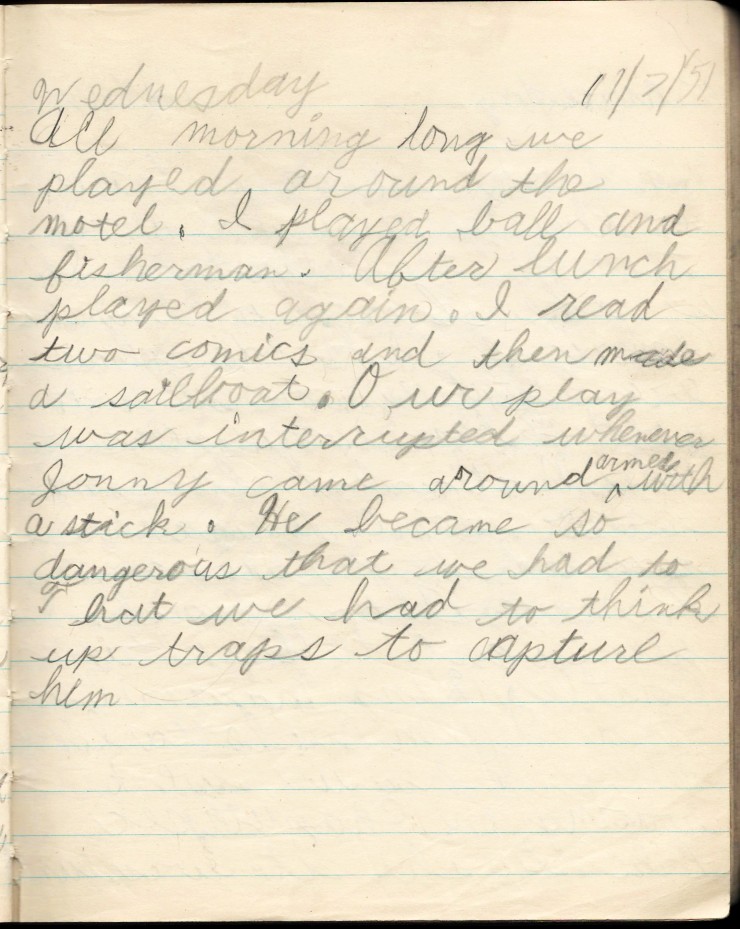 Wednesday 11/7/51
All morning long we
played around the
motel. I played ball and
fisherman. After lunch
played again. I read
two comics and then made
a sailboat. Our play
was interrupted whenever
Jonny came around ^armed with
a stick. He became so
dangerous that we had to
That we had to think
up traps to capture
him